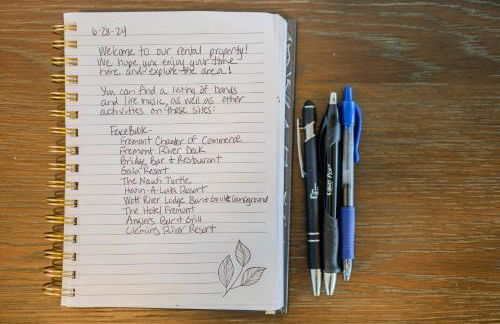 6-28-24
Welcome to our rental property!
We hope you enjoy your time
here and explore the area!
You can find a listing of bands
and live music, as well as other
activities on these sites:
Facebook-
Fremont Chamber of Commerce
Fremont River Deck
Bridge Bar & Restaurant
Gala Resort
The Nauti Turtle
Hahn-A-Lula Resort
Wolf River Lodge Bar & Grill & Campground
The Hotel Fremont
Anglers Bar & Grill
Clemins River Resort